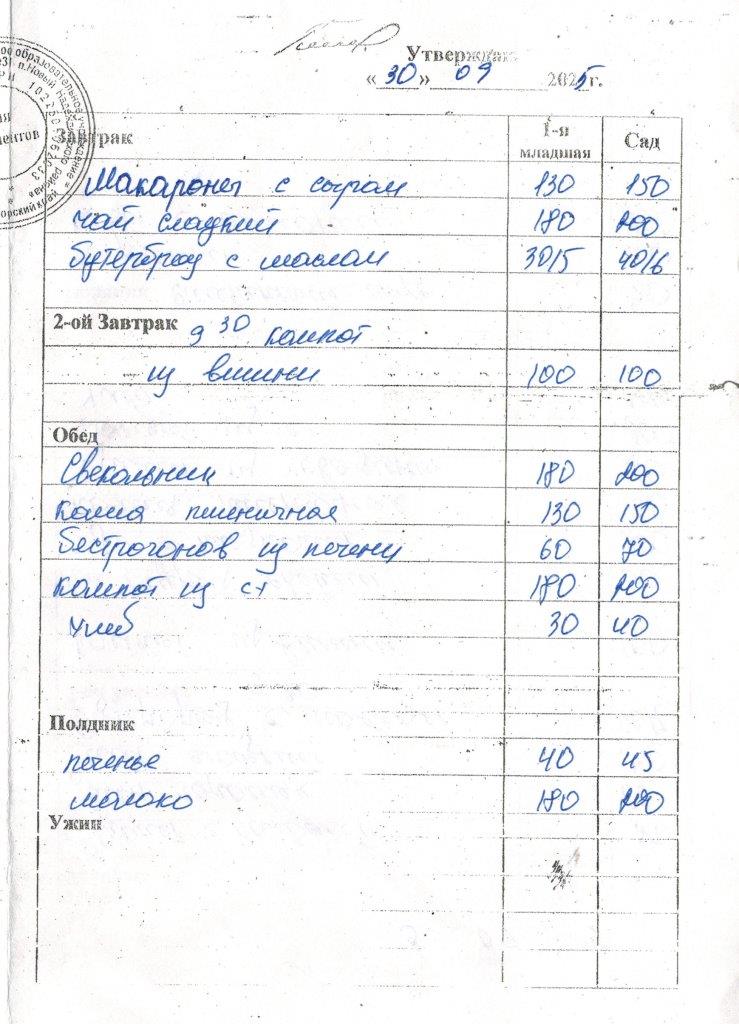 Утверждаю
«30» 09 2025г.
Завтрак 1-я младшая Сад
Макароны с сыром 130 150
чай сладкий 180 200
бутерброд с маслом 30/5 40/6
2-ой Завтрак 9 30 компот
из вишни 100 100
Обед
Свекольник 180 200
каша пшеничная 130 150
бестрогонов из печени 60 70
компот из с/ 180 200
хлеб 30 40
Полдник
печенье 40 45
молоко 180 200
Ужин